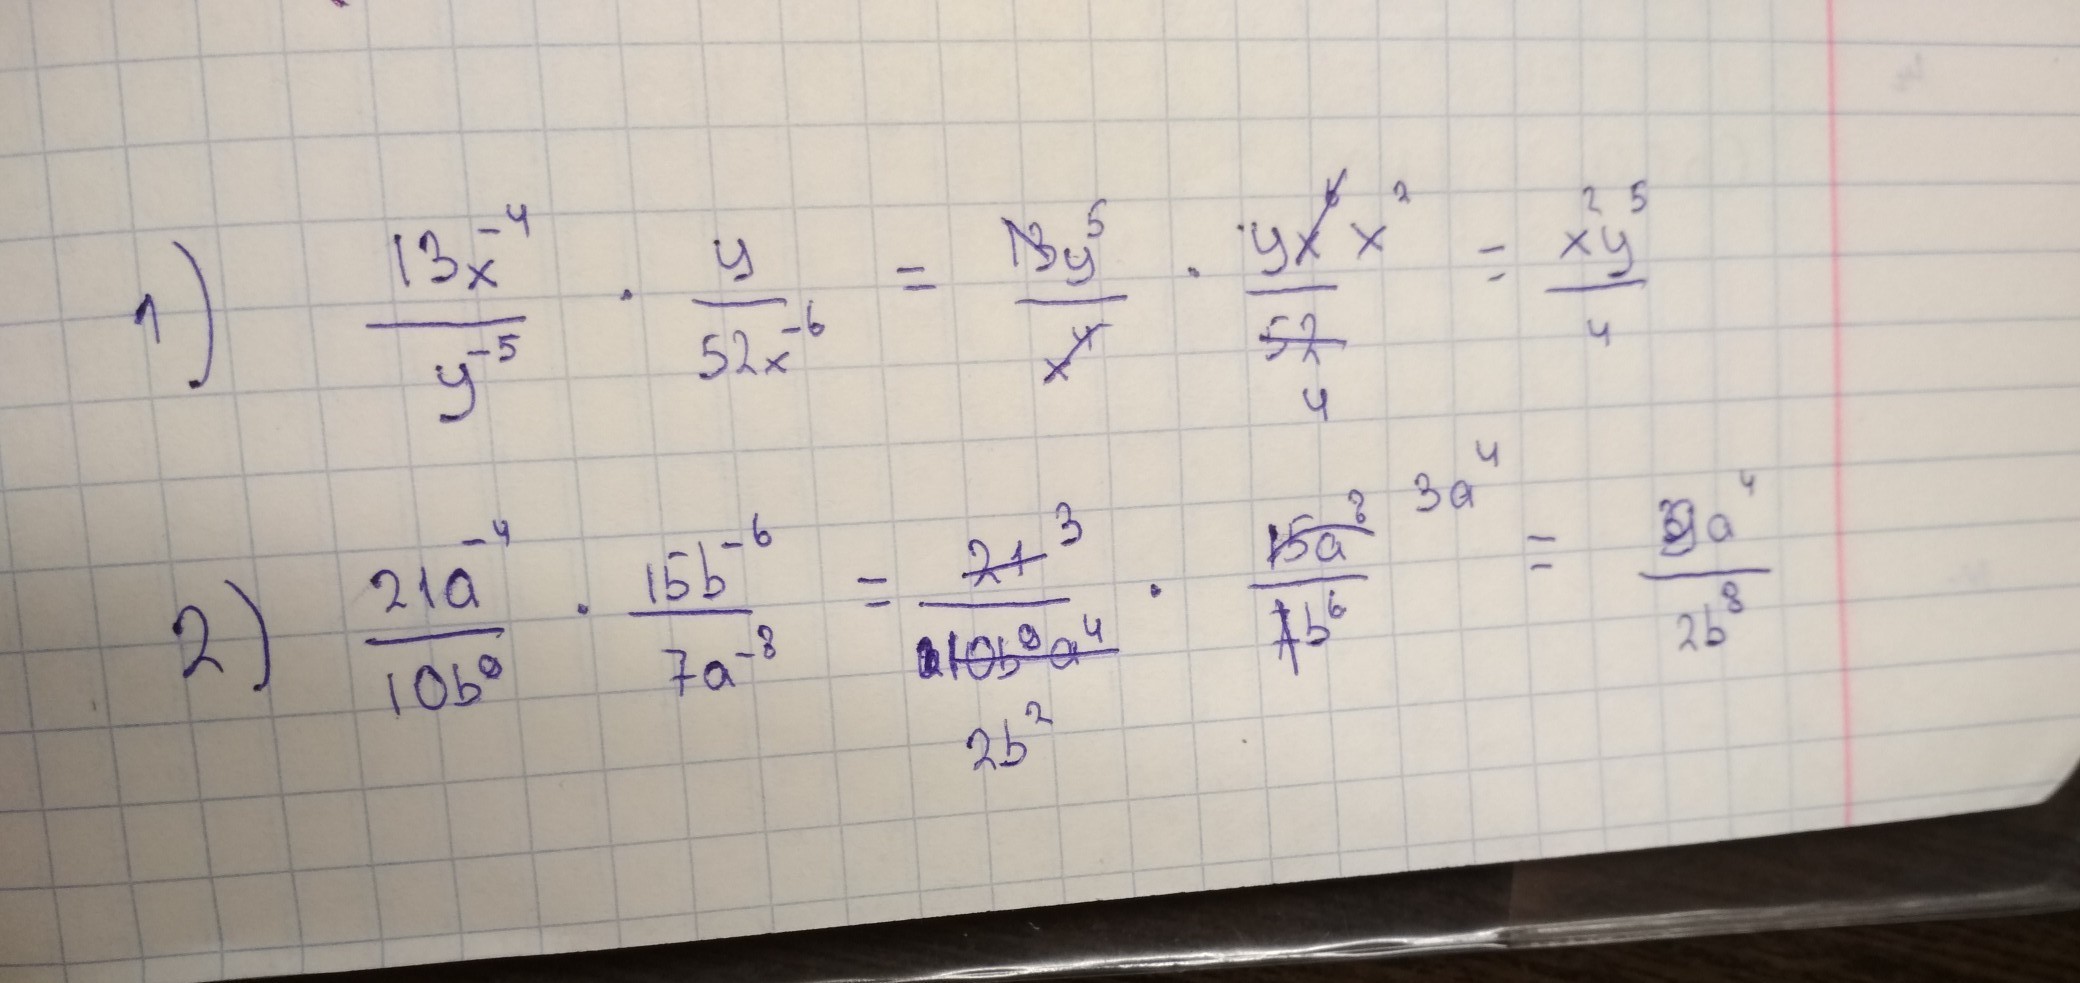 1) 13x⁻⁴/y⁻⁵ · y/52x⁻⁶ = 13y⁵/x⁴ · yx⁶ x²/52 4 = x²y⁵/4
2) 21a⁻⁴/10b² · 15b⁻⁶/7a⁻⁸ = 21 3/10b²a⁴ 2b² · 15a⁸ 3a⁴/7b⁶ = 9a⁴/2b⁸